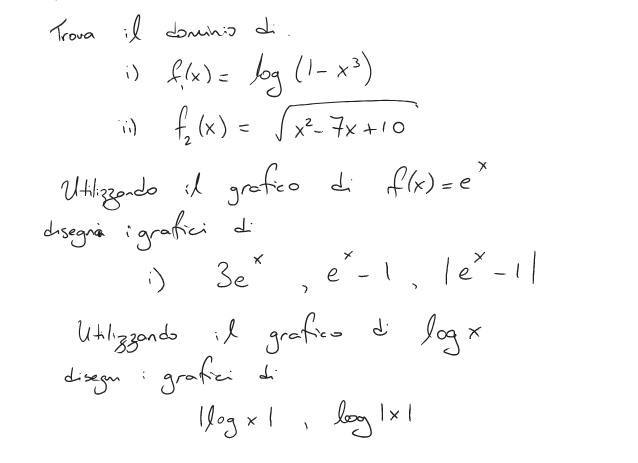 Trova il dominio di.
i) f₁(x) = log (1-x³)
ii) f₂(x) = √(x²-7x+10)
Utilizzando il grafico di f(x)=eˣ
disegna i grafici di
i) 3eˣ, eˣ-1, |eˣ-1|
Utilizzando il grafico di log x
disegn i grafici di
|log x|, log |x|